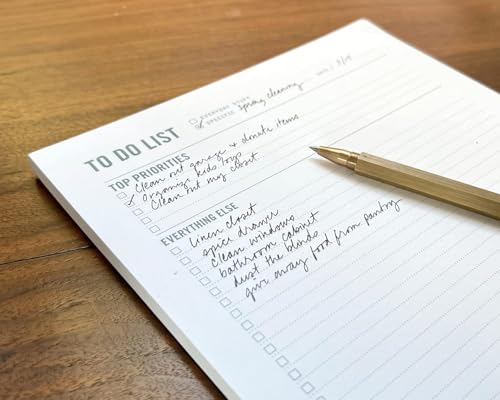 TO DO LIST
EVERYDAY STUFF
SPECIFIC spring cleaning
TOP PRIORITIES
Clean out garage + donate items
Organize kids toys
Clean out my closet
EVERYTHING ELSE
linen closet
spice drawer
clean windows
bathroom cabinet
dust the blinds
give away food from pantry